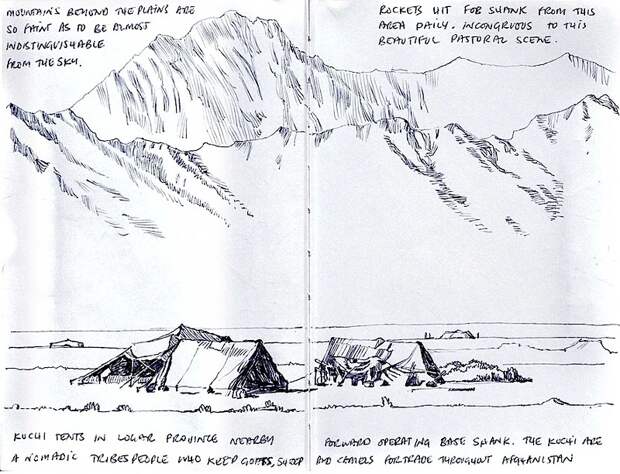 MOUNTAINS BEYOND THE PLAINS ARE
SO FAINT AS TO BE ALMOST
INDISTINGUISHABLE
FROM THE SKY.
ROCKETS HIT FOB SHANK FROM THIS
AREA DAILY. INCONGRUOUS TO THIS
BEAUTIFUL PASTORAL SCENE.
KUCHI TENTS IN LOGAR PROVINCE NEARBY FORWARD OPERATING BASE SHANK. THE KUCHI ARE
A NOMADIC TRIBESPEOPLE WHO KEEP GOATS, SHEEP AND CAMELS FOR TRADE THROUGHOUT AFGHANISTAN